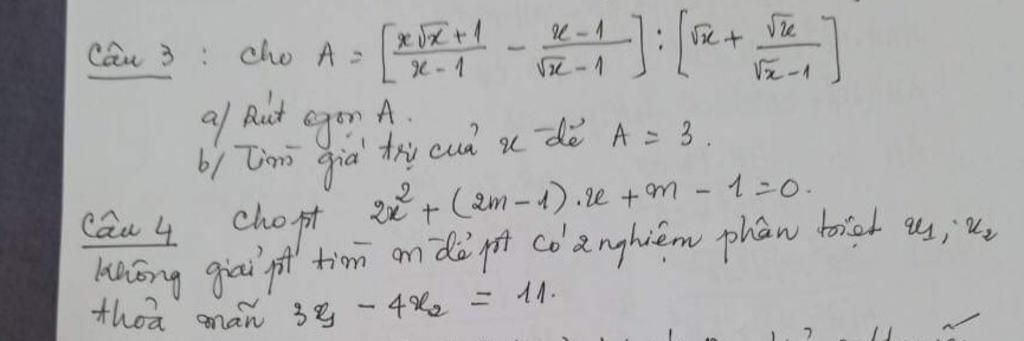 Câu 3 : Cho A = [ (x√x + 1)/(x - 1) - (x - 1)/(√x - 1) ] : [ √x + √x/(√x - 1) ]
a/ Rút gọn A.
b/ Tìm giá trị của x để A = 3.
Câu 4 Cho pt 2x² + (2m - 1).x + m - 1 = 0.
Không giải pt tìm m để pt có 2 nghiệm phân biệt x₁, x₂
thoả mãn 3x₁ - 4x₂ = 11.